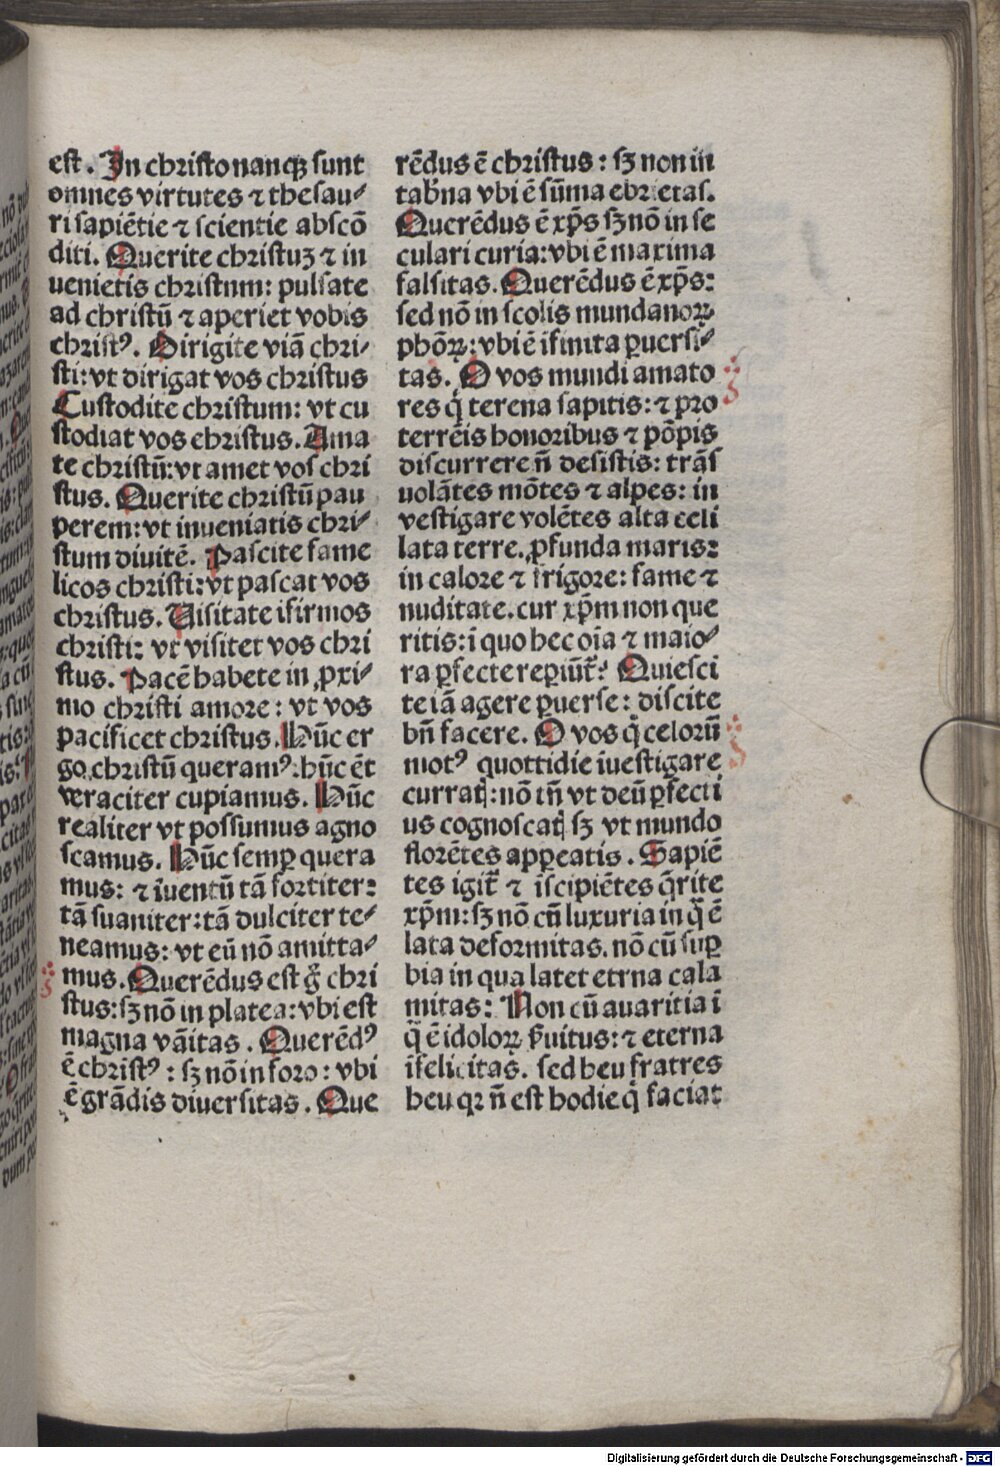 est. In christo nanqꝫ sunt
omnes virtutes ⁊ thesau⸗
ri sapiẽtie ⁊ scientie abscõ
diti. Querite christuꝫ ⁊ in
uenietis christnm: pulsate
ad christũ ⁊ aperiet vobis
christꝰ. Dirigite viã chri⸗
sti: vt dirigat vos christus
Custodite christum: vt cu
stodiat vos christus. Ama
te christũ: vt amet vos chri
stus. Querite christũ pau
perem: vt inueniatis chri⸗
stum diuitẽ. Pascite fame
licos christi: vt pascat vos
christus. Uisitate ĩfirmos
christi: vt visitet vos chri
stus. Pacẽ habete in ꝓxi⸗
mo christi amore: vt vos
pacificet christus. Hũc er
go christũ queramꝰ: hũc ẽt
veraciter cupiamus. Hũc
realiter vt possumus agno
scamus. Hũc semꝑ quera
mus: ⁊ ĩuentũ tã fortiter:
tã suaniter: tã dulciter te⸗
neamus: vt eũ nõ amitta⸗
mus. Querẽdus est g̃ chri
stus: sꝫ nõ in platea: vbi est
magna vãitas. Querẽdꝰ
ẽ christꝰ: sꝫ nõ in foro: vbi
ẽ grãdis diuersitas. Que
rẽdus ẽ christus: sꝫ non in
tab̃na vbi ẽ sũma ebrietas.
Querẽdus ẽ xp̃s sꝫ nõ in se
culari curia: vbi ẽ maxima
falsitas. Querẽdus ẽ xp̃s:
sed nõ in scolis mundanoꝝ
phõꝝ: vbi ẽ ĩfinita ꝑuersi⸗
tas. O vos mundi amato
res q̃ terena sapitis: ⁊ pro
terrẽis honoribus ⁊ põpis
discurrere ñ desistis: trãs
uolãtes mõtes ⁊ alpes: in
vestigare volẽtes alta celi
lata terre. ꝓfunda maris:
in calore ⁊ frigore: fame ⁊
nuditate. cur xp̃m non que
ritis: ĩ quo hec oĩa ⁊ maio⸗
ra ꝑfecte reꝑiũt᷑? Quiesci
te iã agere ꝑuerse: discite
bñ facere. O vos q̃ celorũ
motꝰ quottidie ĩuestigare
curratꝭ: nõ tñ vt deũ ꝑfecti
us cognoscatꝭ sꝫ vt mundo
florẽtes appeatis. Sapiẽ
tes igit᷑ ⁊ ĩscipiẽtes q̃rite
xp̃m: sꝫ nõ cũ luxuria in q̃ ẽ
lata deformitas. nõ cũ suꝑ
bia in qua latet etrna cala
mitas: Non cũ auaritia ĩ
q̃ ẽ idoloꝝ ẜuitus: ⁊ eterna
ĩfelicitas. sed heu fratres
heu qꝛ ñ est hodie q̃ faciat
Digitalisierung gefördert durch die Deutsche Forschungsgemeinschaft - DFG